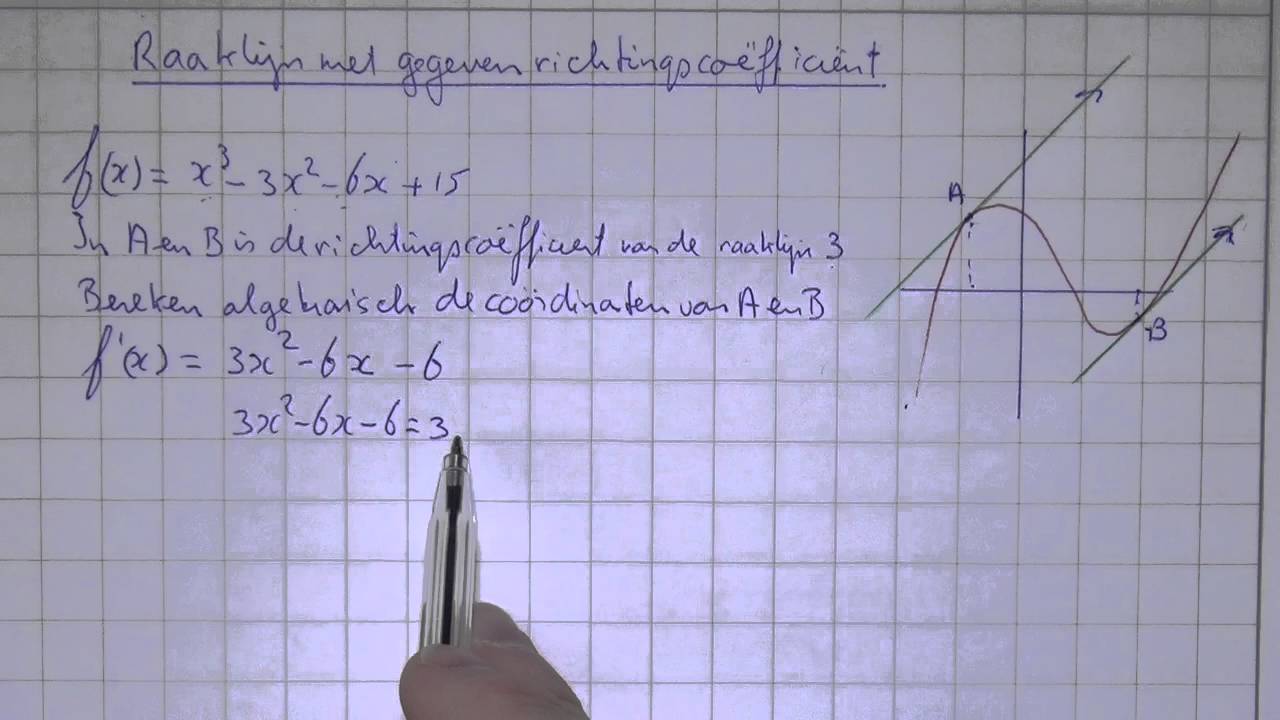 Raaklijn met gegeven richtingscoëfficiënt
f(x) = x³ - 3x² - 6x + 15
In A en B is de richtingscoëfficient van de raaklijn 3
Bereken algebraisch de coördinaten van A en B
f'(x) = 3x² - 6x - 6
3x² - 6x - 6 = 3
A
B